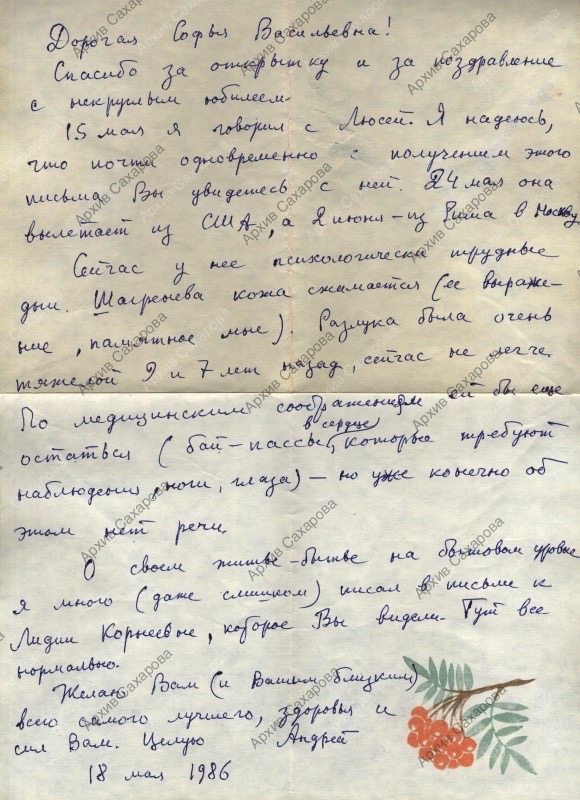 Дорогая Софья Васильевна!
Спасибо за открытку и за поздравление
с некруглым юбилеем.
15 мая я говорил с Люсей. Я надеюсь,
что почти одновременно с получением этого
письма Вы увидетесь с ней. 24 мая она
вылетает из США, а 2 июня – из Рима в Москву.
Сейчас у нее психологически трудные
дни. Шагренева кожа сжимается (ее выраже-
ние, памятное мне). Разлука была очень
тяжелой 9 и 7 лет назад, сейчас не легче.
По медицинским соображениям ей бы еще
остаться (бай-пассы в сердце, которые требуют
наблюдения, ноги, глаза) – но уже конечно об
этом нет речи.
О своем житье-бытье на бытовом уровне
я много (даже слишком) писал в письме к
Лидии Корнеевне, которое Вы видели. Тут все
нормально.
Желаю Вам (и Вашим близким)
всего самого лучшего, здоровья и
сил Вам. Целую Андрей
18 мая 1986
Архив Сахарова